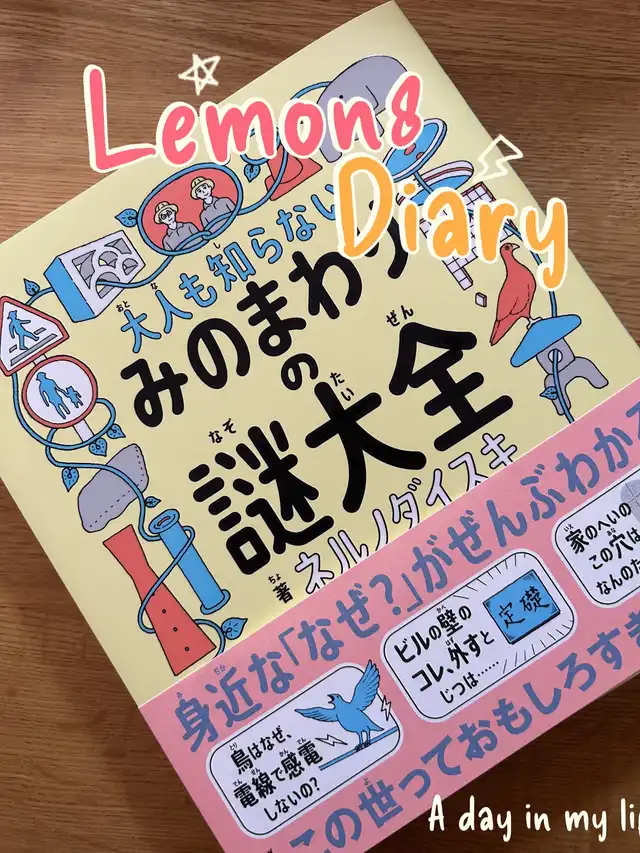 Lemon8
Diary
大人も知らない
みのまわりの
謎大全
著 ネルノダイスキ
身近な「なぜ?」がぜんぶわかる
鳥はなぜ、
電線で感電
しないの?
ビルの壁の
コレ、外すと
じつは……
定礎
家のへいの
この穴は
なんのた
この世っておもしろすぎ
A day in my li